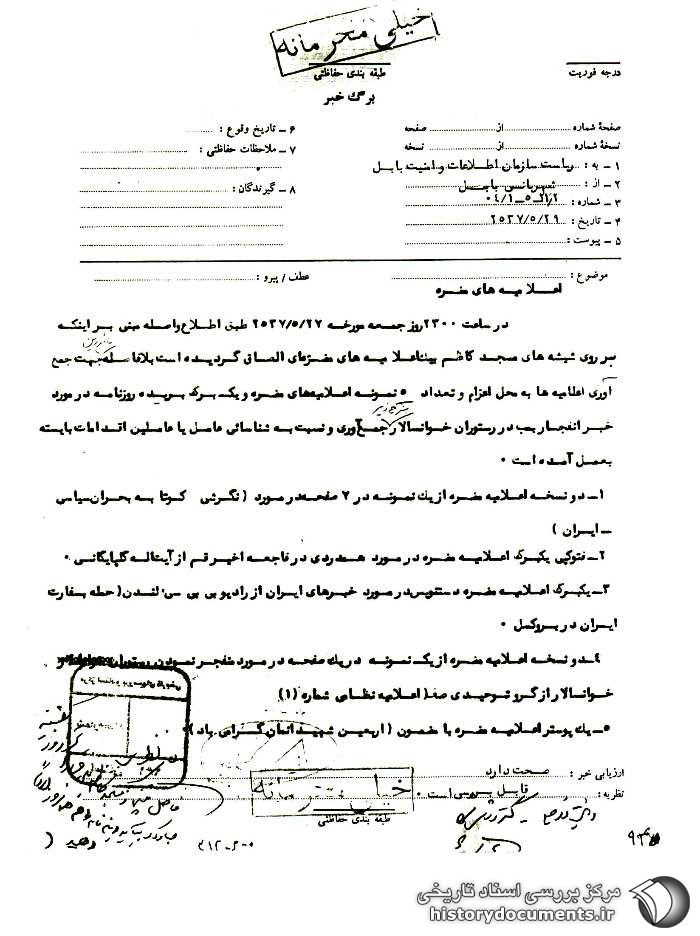 خیلی محرمانه
طبقه بندی حفاظتی
درجه فوریت
برگ خبر
صفحهٔ شماره از صفحه
نسخهٔ شماره از نسخه
۱ - به : ریاست سازمان اطلاعات و امنیت بابل
۲ - از : شهربانی بابل
۳ - شماره :
۴ - تاریخ : ۲۵۳۷/۵/۲۹
۵ - پیوست :
۶ - تاریخ وقوع :
۷ - ملاحظات حفاظتی :
۸ - گیرندگان :
موضوع : عطف / پیرو :
اعلامیه های مضره
در ساعت ۲۳۰۰ روز جمعه مورخه ۲۵۳۷/۵/۲۷ طبق اطلاع واصله مبنی بر اینکه
بر روی شیشه های مسجد کاظم بیک اعلامیه های مضره‌ای الصاق گردیده است بلافاصله جهت جمع
آوری اعلامیه ها به محل اعزام و تعداد ۵ نمونه اعلامیه‌های مضره و یک برگ بریده روزنامه در مورد
خبر انفجار بمب در رستوران خوانسالار جمع‌آوری و نسبت به شناسائی عامل یا عاملین اقدامات بایسته
بعمل آمده است ۰
۱- دو نسخه اعلامیه مضره از یک نمونه در ۲ صفحه در مورد ( نگرشی کوتا به بحران سیاسی
- ایران )
۲- فتوکپی یکبرگ اعلامیه مضره در مورد همدردی در فاجعه اخیر قم از آیت‌اله گلپایگانی ۰
۳- یکبرگ اعلامیه مضره دستنویس در مورد خبرهای ایران از رادیو بی بی سی لندن ( حمله بسفارت
ایران در بروکسل ۰
۴- دو نسخه اعلامیه مضره از یک نمونه در یک صفحه در مورد منفجر نمودن رستوران
خوانسالار از گروه توحیدی صف ( اعلامیه نظامی شماره (۱)
۵- یک پوستر اعلامیه مضره با مضمون ( اربعین شهیدانمان گرامی باد )
ارزیابی خبر : صحت دارد
نظریه : قابل بررسی است ۰
خیلی محرمانه
طبقه بندی حفاظتی
۳۱۲-۲-۵
مرکز بررسی اسناد تاریخی
historydocuments.ir